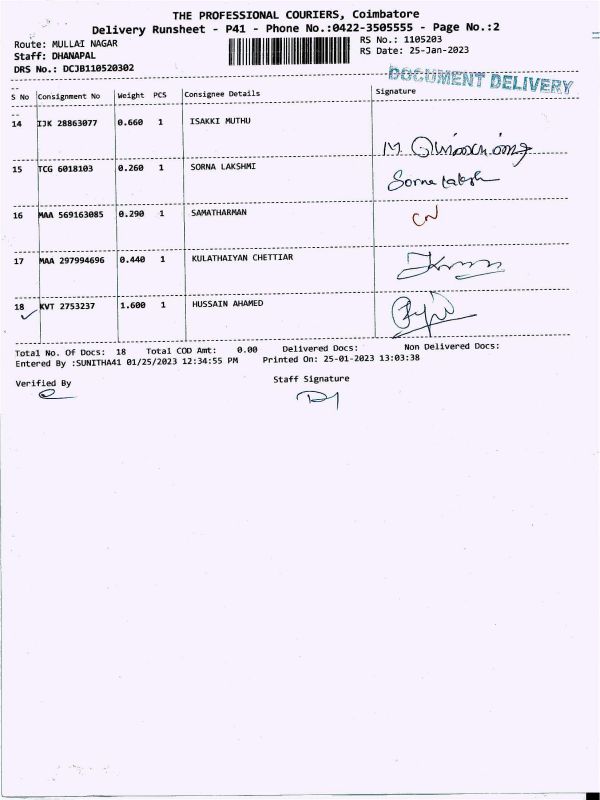 THE PROFESSIONAL COURIERS, Coimbatore
Delivery Runsheet - P41 - Phone No.:0422-3505555 - Page No.:2
Route: MULLAI NAGAR
RS No.: 1105203
Staff: DHANAPAL
RS Date: 25-Jan-2023
DRS No.: DCJB110520302
DOCUMENT DELIVERY
S No Consignment No Weight PCS Consignee Details Signature
14 IJK 28863077 0.660 1 ISAKKI MUTHU
15 TCG 6018103 0.260 1 SORNA LAKSHMI
Sorna Laksh
16 MAA 569163085 0.290 1 SAMATHARMAN
17 MAA 297994696 0.440 1 KULATHAIYAN CHETTIAR
18 KVT 2753237 1.600 1 HUSSAIN AHAMED
Total No. Of Docs: 18 Total COD Amt: 0.00 Delivered Docs: Non Delivered Docs:
Entered By :SUNITHA41 01/25/2023 12:34:55 PM Printed On: 25-01-2023 13:03:38
Verified By Staff Signature